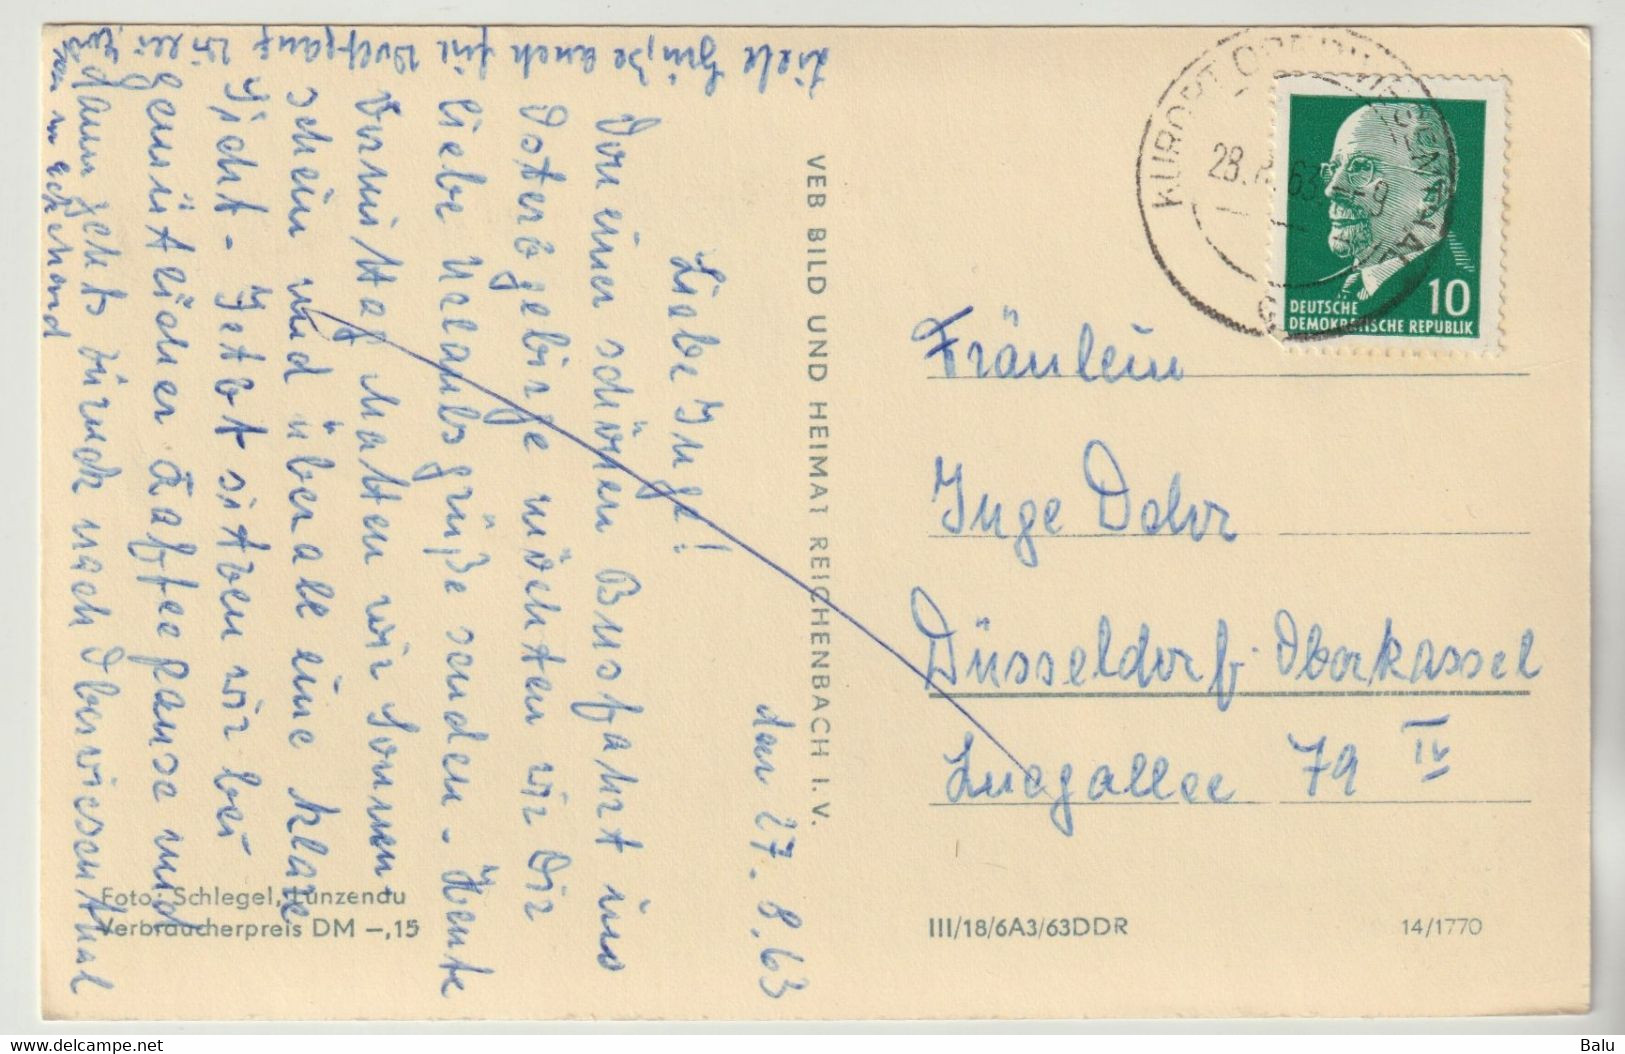 den 27.8.63
Liebe Inge!
Von einer schönen Busfahrt ins
Osterzgebirge möchten wir Dir
liebe Urlaubsgrüße senden. Heute
Vormittag hatten wir Sonnen-
schein und überall eine klare
Sicht. Jetzt sitzen wir bei
gemütlicher Kaffeepause und
dann geht's zurück nach Oberwiesenthal
Viele Grüße auch für
VEB BILD UND HEIMAT REICHENBACH I. V.
Foto: Schlegel, Lunzenau
Verbraucherpreis DM –,15
KURORT OBERWIESENTHAL
28. 63 -9
10
DEUTSCHE
DEMOKRATISCHE REPUBLIK
Fräulein
Inge Dohr
Düsseldorf-Oberkassel
Luegallee 79 IV
III/18/6A3/63DDR
14/1770
www.delcampe.net
Balu